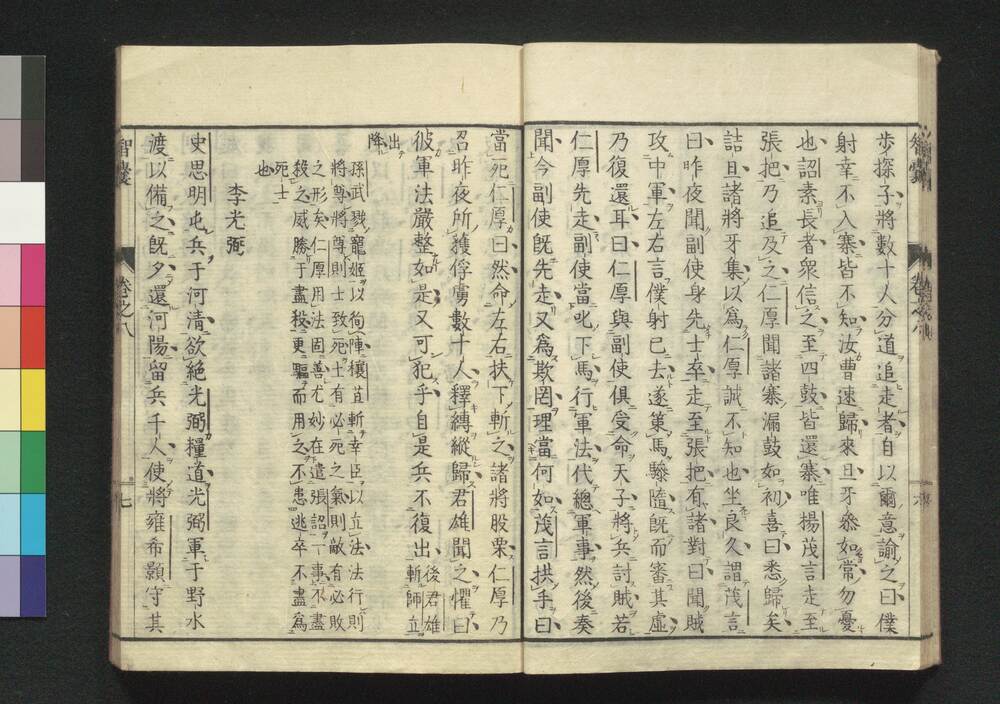 步探子將數十人分道追走者自以爾意諭之曰僕
射幸不入寨皆不知汝曹速歸來旦牙叅如常勿憂
也詔素長者衆信之至四鼓皆還寨唯楊茂言走至
張把乃追及之仁厚聞諸寨漏鼓如初喜曰悉歸矣
詰旦諸將牙集以爲仁厚誠不知也坐良久謂茂言
曰昨夜聞副使身先士卒走至張把有諸對曰聞賊
攻中軍左右言僕射已去遂策馬驂隨既而審其虛
乃復還耳曰仁厚與副使俱受命天子將兵討賊若
仁厚先走副使當叱下馬行軍法代總軍事然後奏
聞今副使既先走又爲欺罔理當何如茂言拱手曰
當死仁厚曰然命左右扶下斬之諸將股栗仁厚乃
召昨夜所獲俘虜數十人釋縛縱歸君雄聞之懼曰
彼軍法嚴整如是又可犯乎自是兵不復出後君雄斬師立
出降
孫武戮寵姬以徇陣穰苴斬幸臣以立法法行則
將尊將尊則士致死士有必死之氣則敵有必敗
之形矣仁厚用法固善尤妙在遣張詔一事不盡
殺之威勝于盡殺更驅而用之不患逃卒不盡爲
死士
也
李光弼
史思明屯兵于河清欲絕光弼糧道光弼軍于野水
渡以備之既夕還河陽留兵千人使將雍希顥守其
智囊
卷之八
七